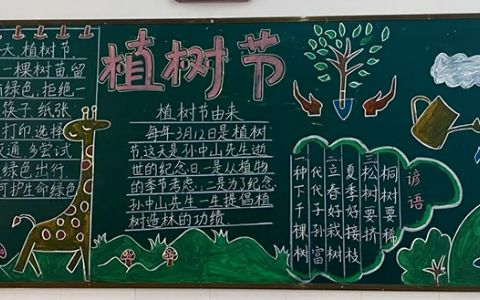 天 植树节
一棵树苗,留
绿色,拒绝一
筷子 纸张
打印 选择
交通 多尝试
绿色出行
呵护生命绿色
植树节
植树节由来
每年3月12日是植树
节这天是孙中山先生逝
世的纪念日一是从植物
的季节考虑、二是为了纪念
孙中山先生一生提倡植
树造林的功绩.
谚语
一种下千棵树
代代子孙富
二立春好栽树
夏季好接枝
三松树要挤
桐树要稀